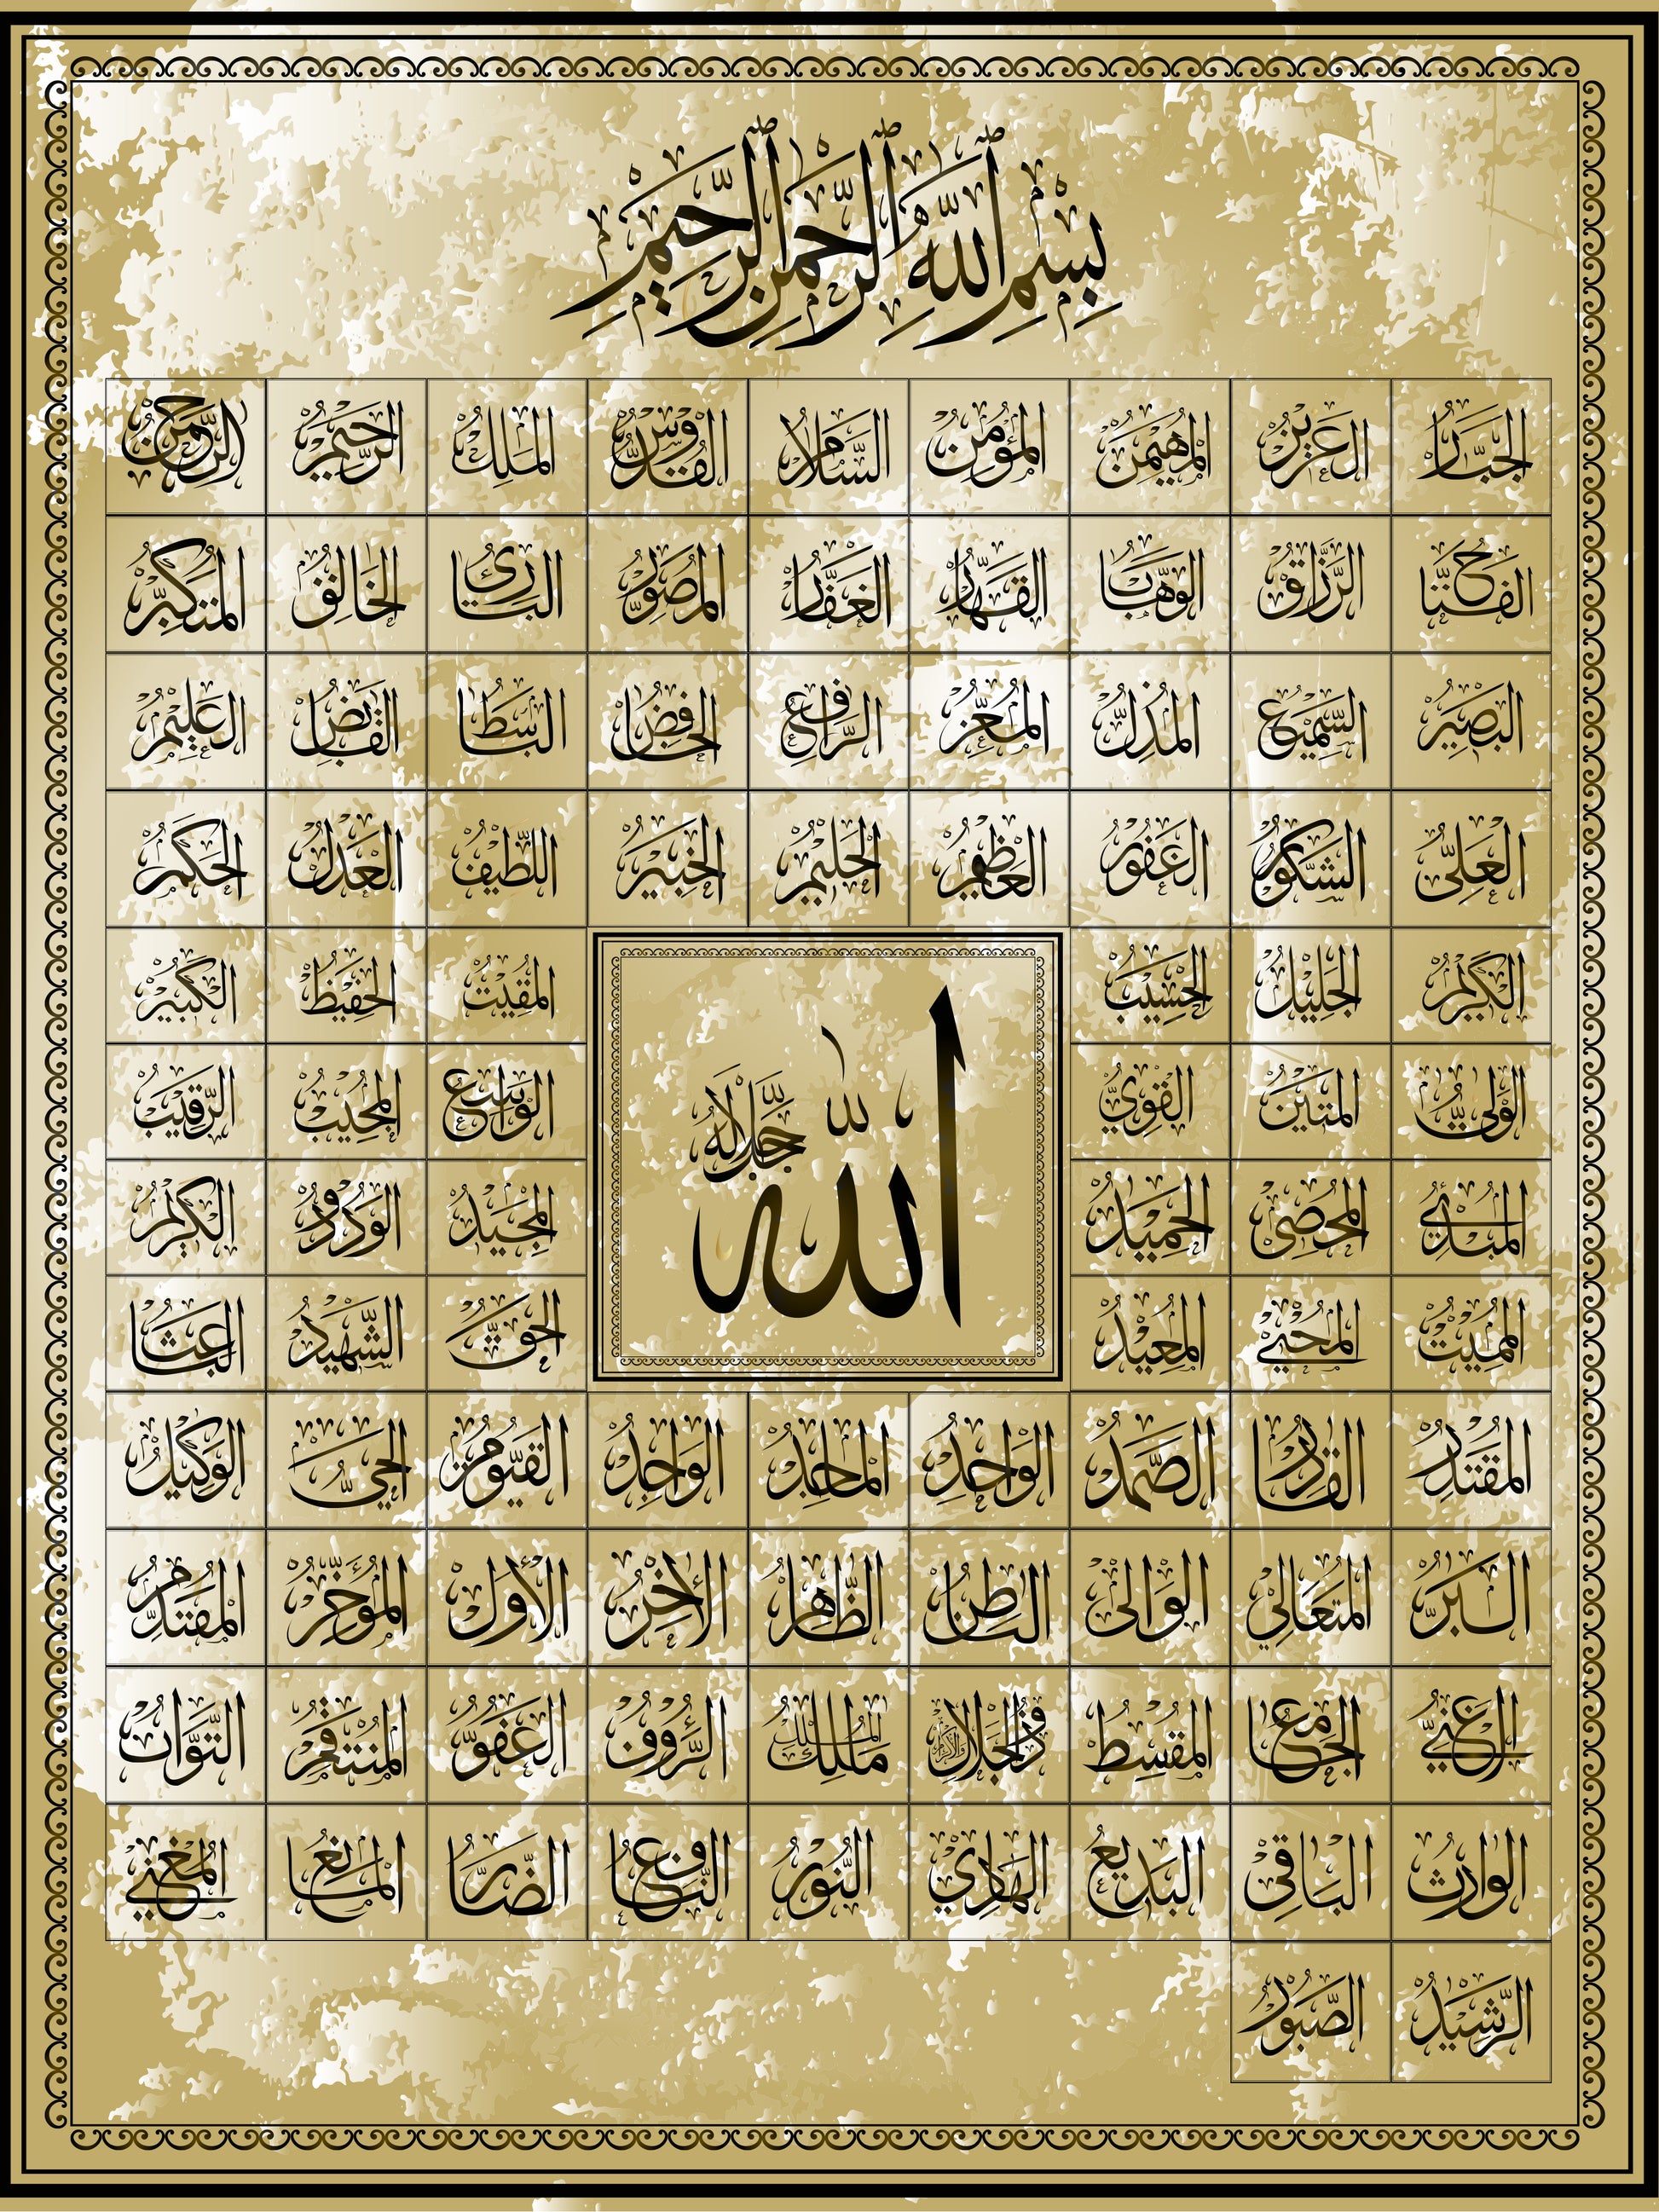 بسم الله الرحمن الرحيم
الجبار العزيز المهيمن المؤمن السلام القدوس الملك الرحيم الرحمن
الفتاح الرزاق الوهاب القهار الغفار المصور البارئ الخالق المتكبر
البصير السميع المذل المعز الرافع الخافض الباسط القابض العليم
العلي الشكور الغفور العظيم الحليم الخبير اللطيف العدل الحكم
الكريم الجليل الحسيب المقيت الحفيظ الكبير
الولي المتين القوي الواسع المجيب الرقيب
الله جل جلاله
المبدئ المحصي الحميد المجيد الودود الكريم
المميت المحيي المعيد الحق الشهيد الباعث
المقتدر القادر الصمد الواحد الماجد الواجد القيوم الحي الوكيل
البر المتعالي الوالي الباطن الظاهر الآخر الأول المؤخر المقتدم
الغني الجامع المقسط ذو الجلال والإكرام مالك الملك الرؤوف العفو المنتقم التواب
الوارث الباقي البديع الهادي النور النافع الضار المانع المغني
الرشيد الصبور